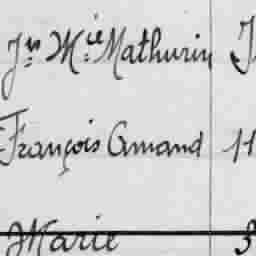 Jn Mie Mathurin J
François Amand 11
Marie 3